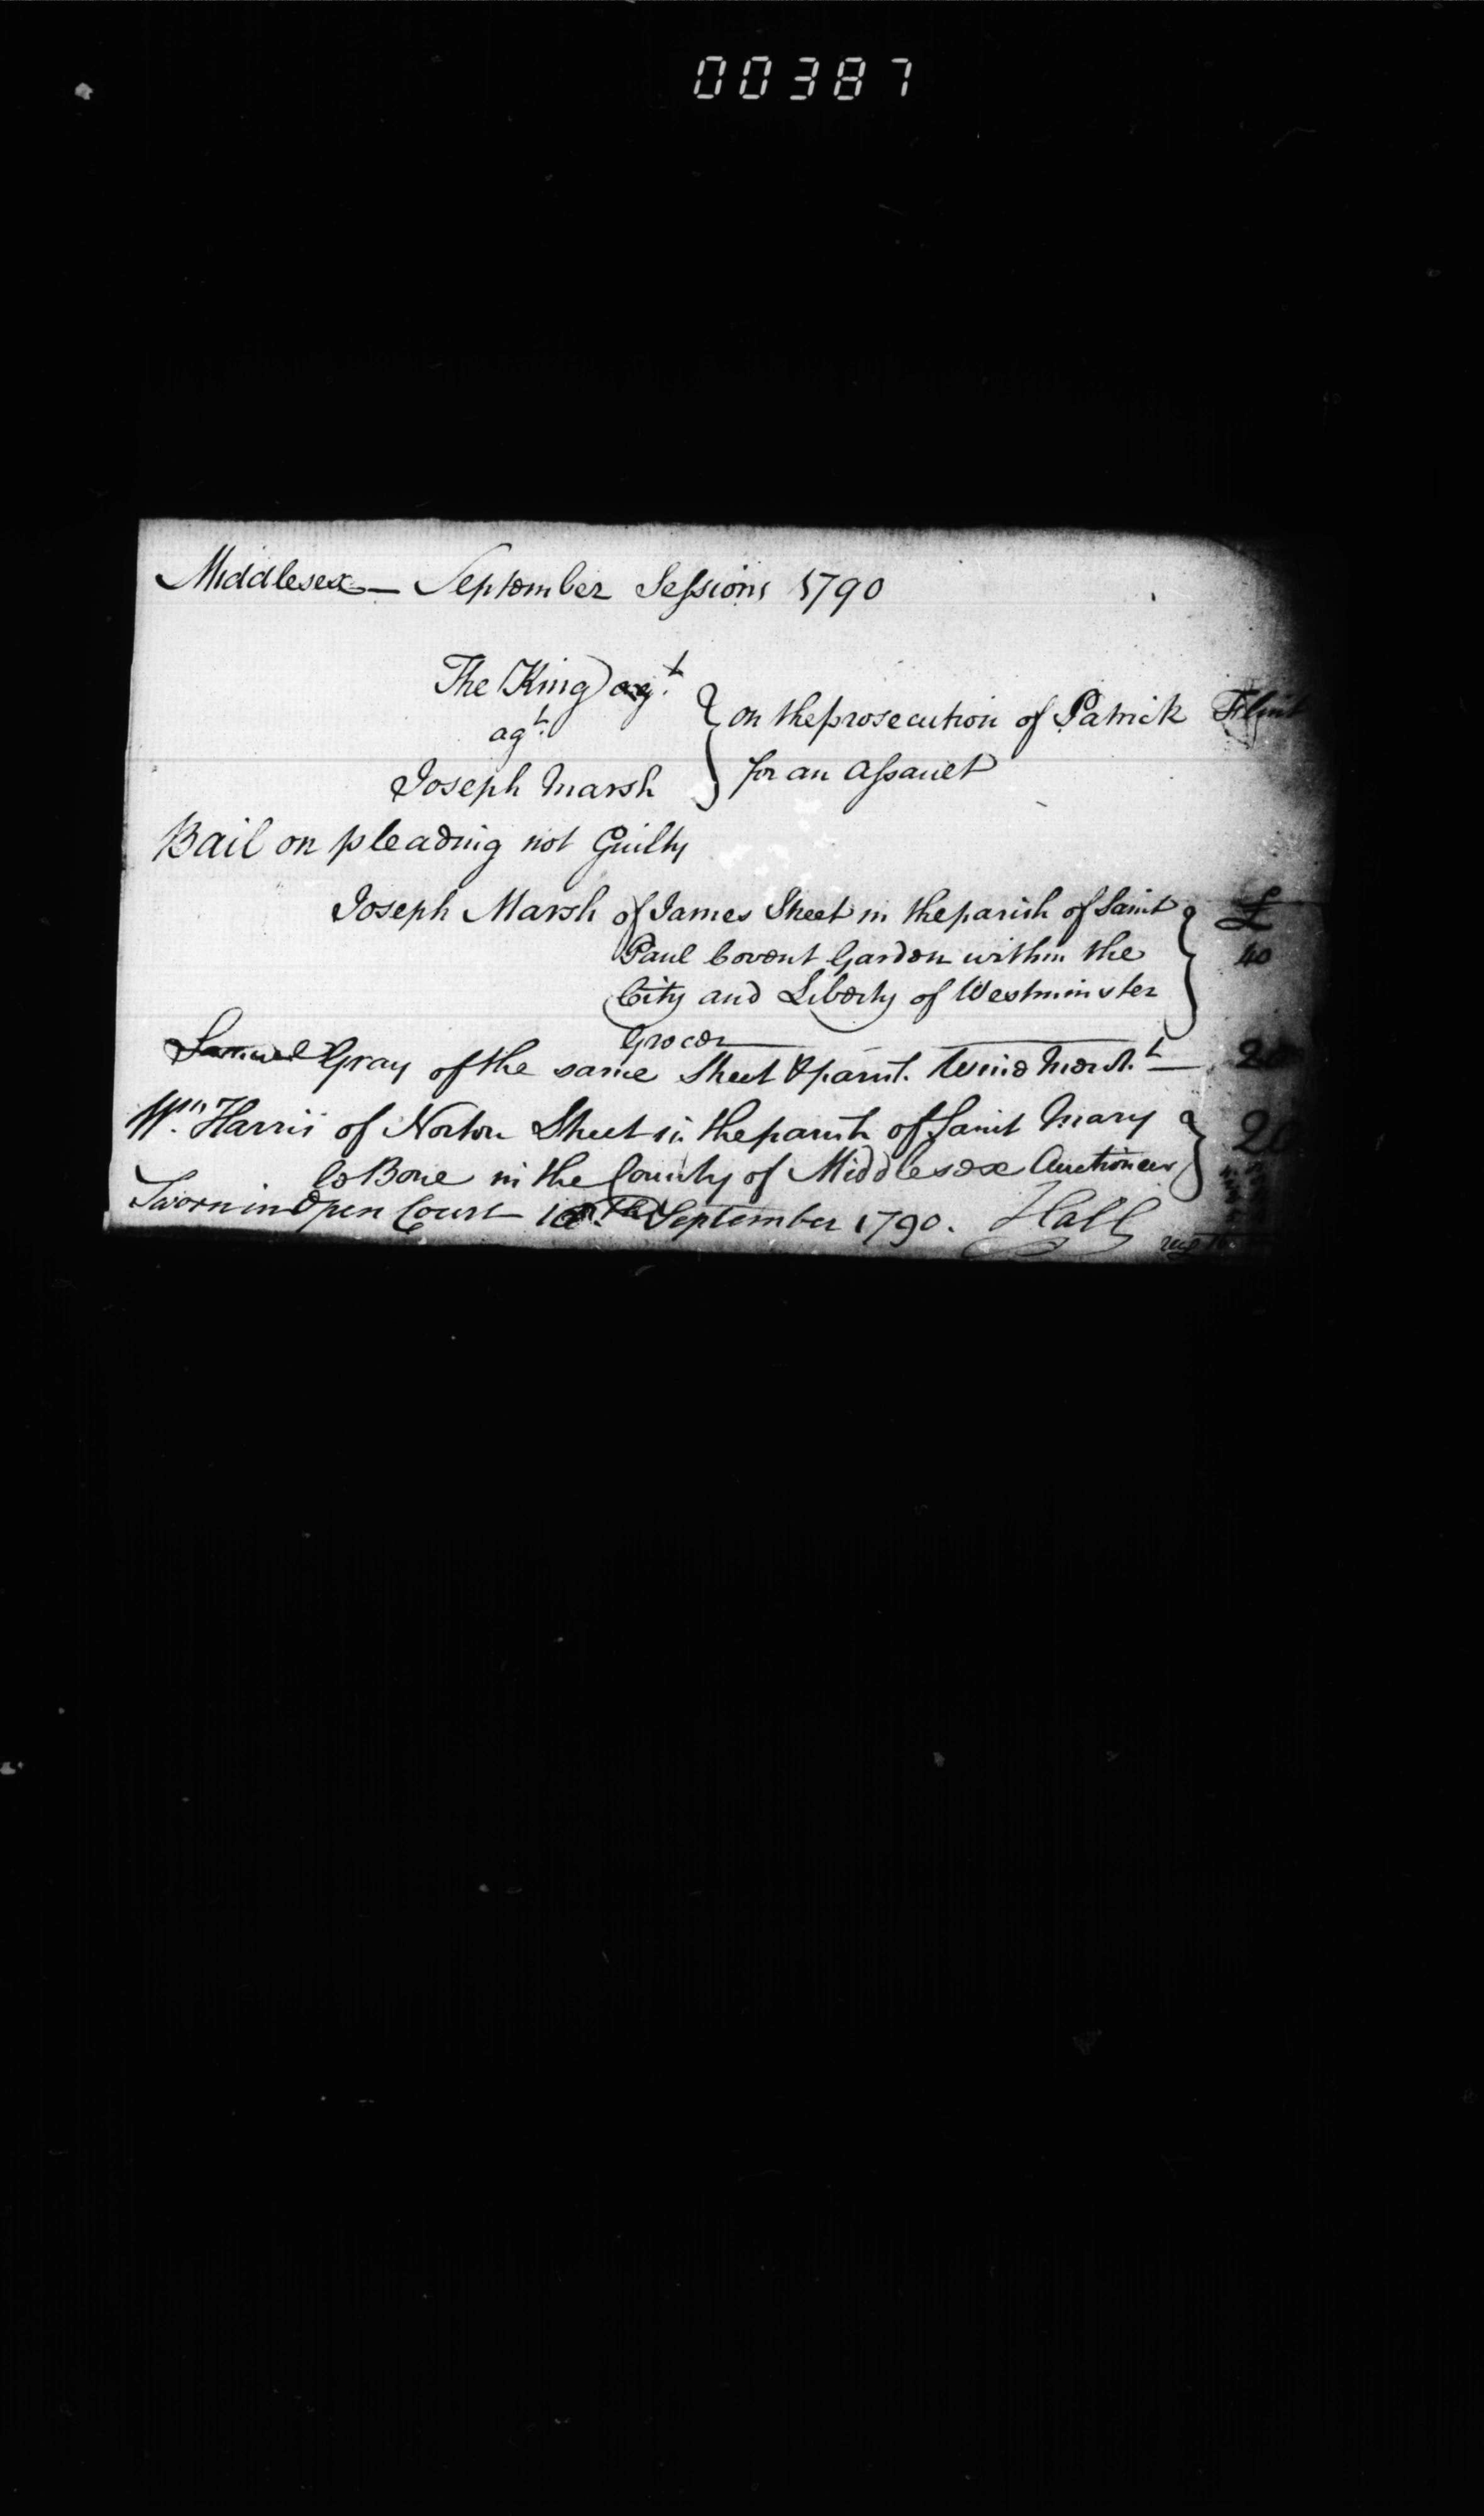 00387
Middlesex — September Sessions 1790
The King agt.
agt.
Joseph Marsh
on the prosecution of Patrick
for an Assault
Bail on pleading not Guilty
Joseph Marsh of James Street in the parish of Saint £
Paul Covent Garden within the 40
City and Liberty of Westminster
Grocer
Samuel Gray of the same Street & parish. Wine Mercht. — 20
Wm. Harris of Norton Street in the parish of Saint Mary 20
le Bone in the County of Middlesex Auctioneer
Sworn in Open Court September 1790. Hall